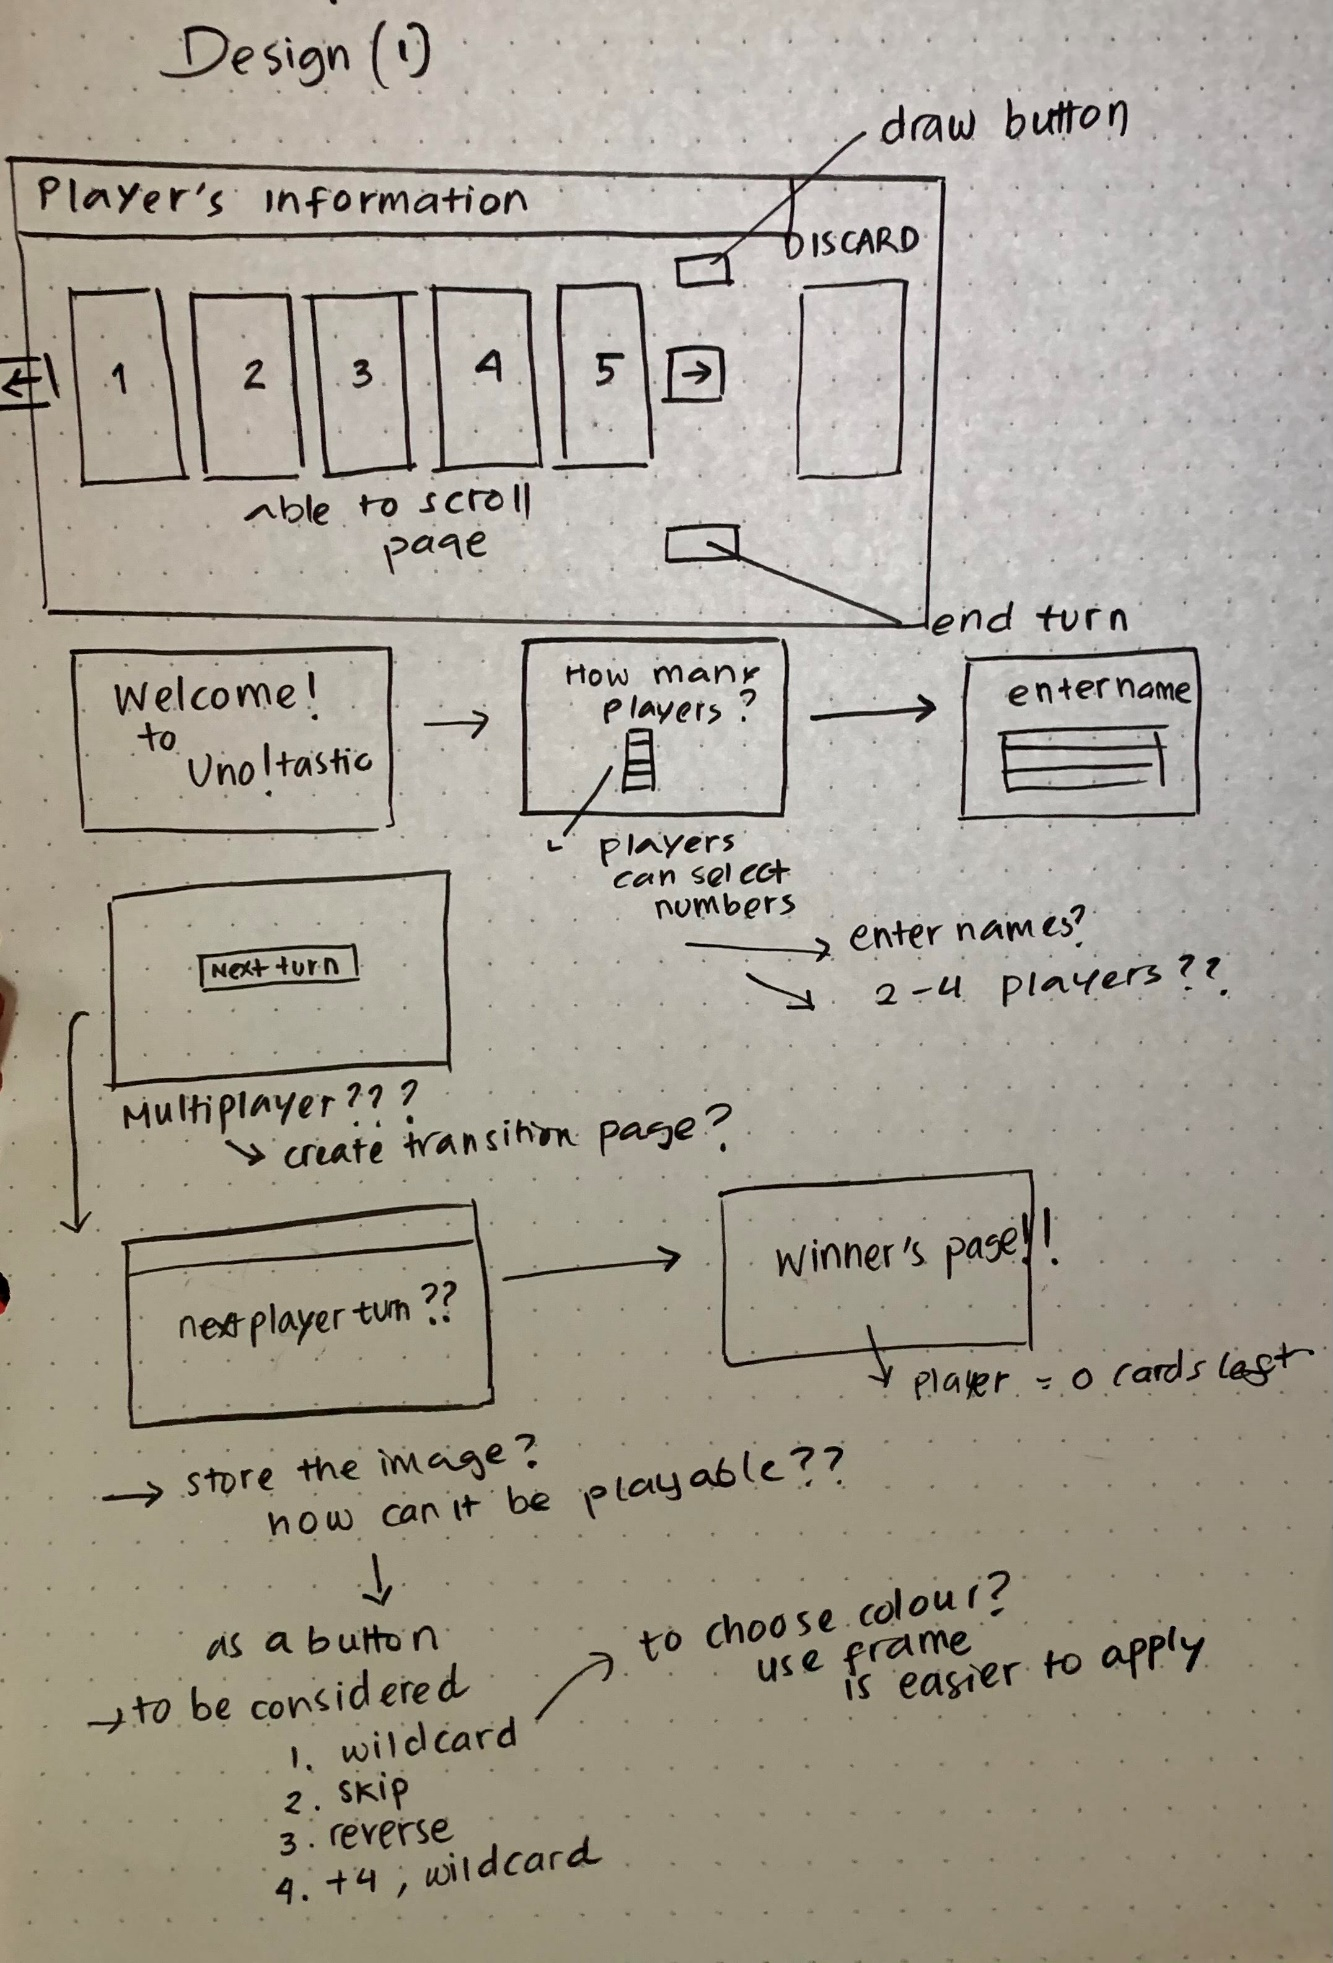 Design (1)
draw button
Player's information
DISCARD
←
1
2
3
4
5
→
able to scroll
page
end turn
Welcome!
to
Uno!tastic
→
How many
players?
→
enter name
players
can select
numbers
→ enter names?
↘ 2-4 players??
Next turn
Multiplayer???
↘ create transition page?
next player turn??
→
winner's page!!
↓ player = 0 cards left
→ store the image?
how can it be playable??
↓
as a button
→ to be considered
1. wildcard
↗ to choose colour?
use frame
is easier to apply
2. skip
3. reverse
4. +4, wildcard